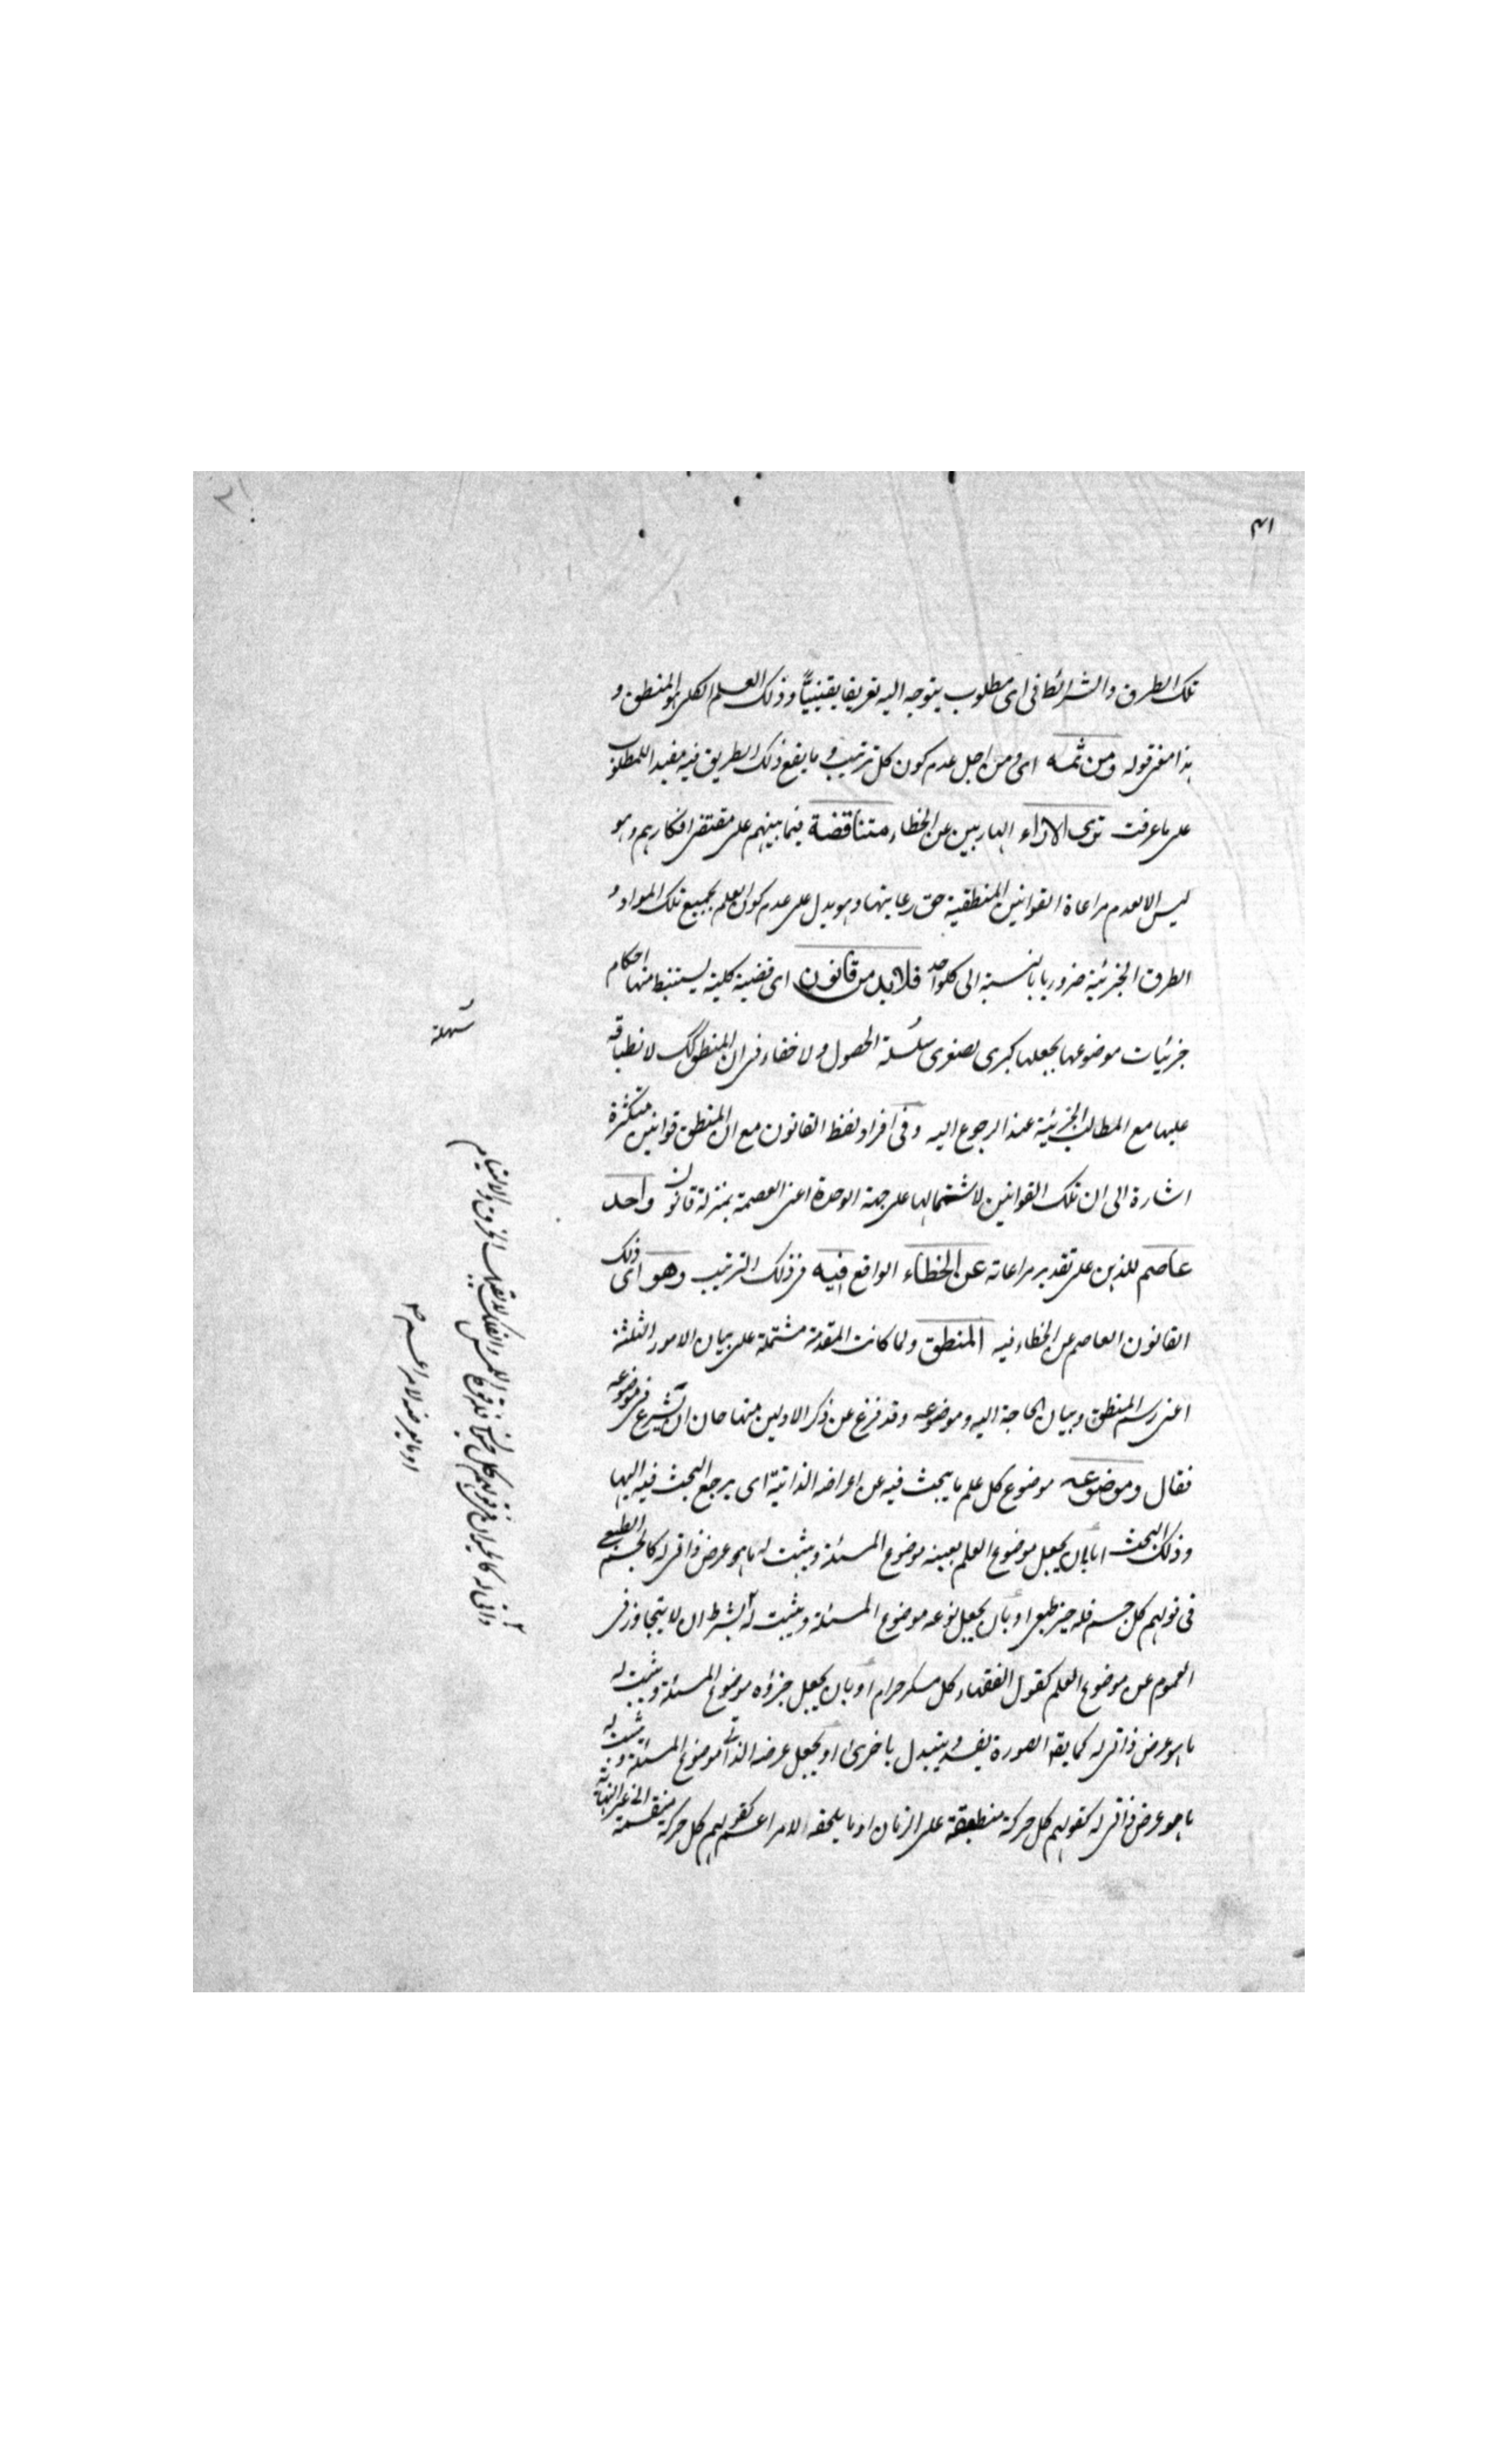 ٤١
تلك الطرق والشرائط فى اى مطلوب يتوجه اليه تعريفا يقينيّا وذلك العلم الكلى هو المنطق و
هذا معنى قوله ومن ثمه اى ومن اجل عدم كون كل ترتيب وما يقع ذلك الطريق فيه مفيدا للمطلوب
على ما عرفت ترى الاراء الهاربين عن الخطاء متناقضة فيما بينهم على مقتضى افكارهم وهو
ليس الا لعدم مراعاة القوانين المنطقية حق رعايتها وهو يدل على عدم كون العلم بجميع تلك المواد و
الطرق الجزئية ضروريا بالنسبة الى كلواحد فلا بد من قانون اى قضية كلية يستنبط منها احكام
جزئيات موضوعها بجعلها كبرى لصغرى سلسة الحصول ولا خفاء فى ان المنطق كك لانطباقه
عليها مع المطالب الجزئية عند الرجوع اليه وفى افراد لفظ القانون مع ان المنطق قوانين متكثرة
اشارة الى ان تلك القوانين لاشتمالها على جهة الوحدة اعنى العصمة بمنزلة قانون واحد
عاصم للذهن على تقدير مراعاته عن الخطاء الواقع فيه فى ذلك الترتيب وهو اى ذلك
القانون العاصم عن الخطاء فيه المنطق ولما كانت المقدمة مشتملة على بيان الامور الثلثة
اعنى رسم المنطق وبيان الحاجة اليه وموضوعه وقد فرغ عن ذكر الاولين منها حان ان يشرع فى موضوعه
فقال وموضوعه موضوع كل علم ما يبحث فيه عن اعراضه الذاتية اى يرجع البحث فيه اليها
وذلك البحث اما بان يجعل موضوع العلم بعينه موضوع المسئلة ويثبت له ما هو عرض ذاتى له كالجسم الطبيعى
فى قولهم كل جسم فله حيز طبعى او بان يجعل نوعه موضوع المسئلة ويثبت له بشرط ان لا يتجاوز فى
العموم عن موضوع العلم كقول الفقهاء كل مسكر حرام او بان يجعل جزؤه موضوع المسئلة ويثبت له
ما هو عرض ذاتى له كما يقه الصورة يفسد ويتبدل باخرى او يجعل عرضه الذاتى موضوع المسئلة ويثبت له
ما هو عرض ذاتى له كقولهم كل حركة منطبقة على الزمان او ما يلحقه الامر اعم كقولهم كل حركة منقسمة الى غير النهاية
سهلة
ذاتى له كالحيوان فى قولهم كل حيوان فله قوة اللمس
او ما يعرضه لامر اعم